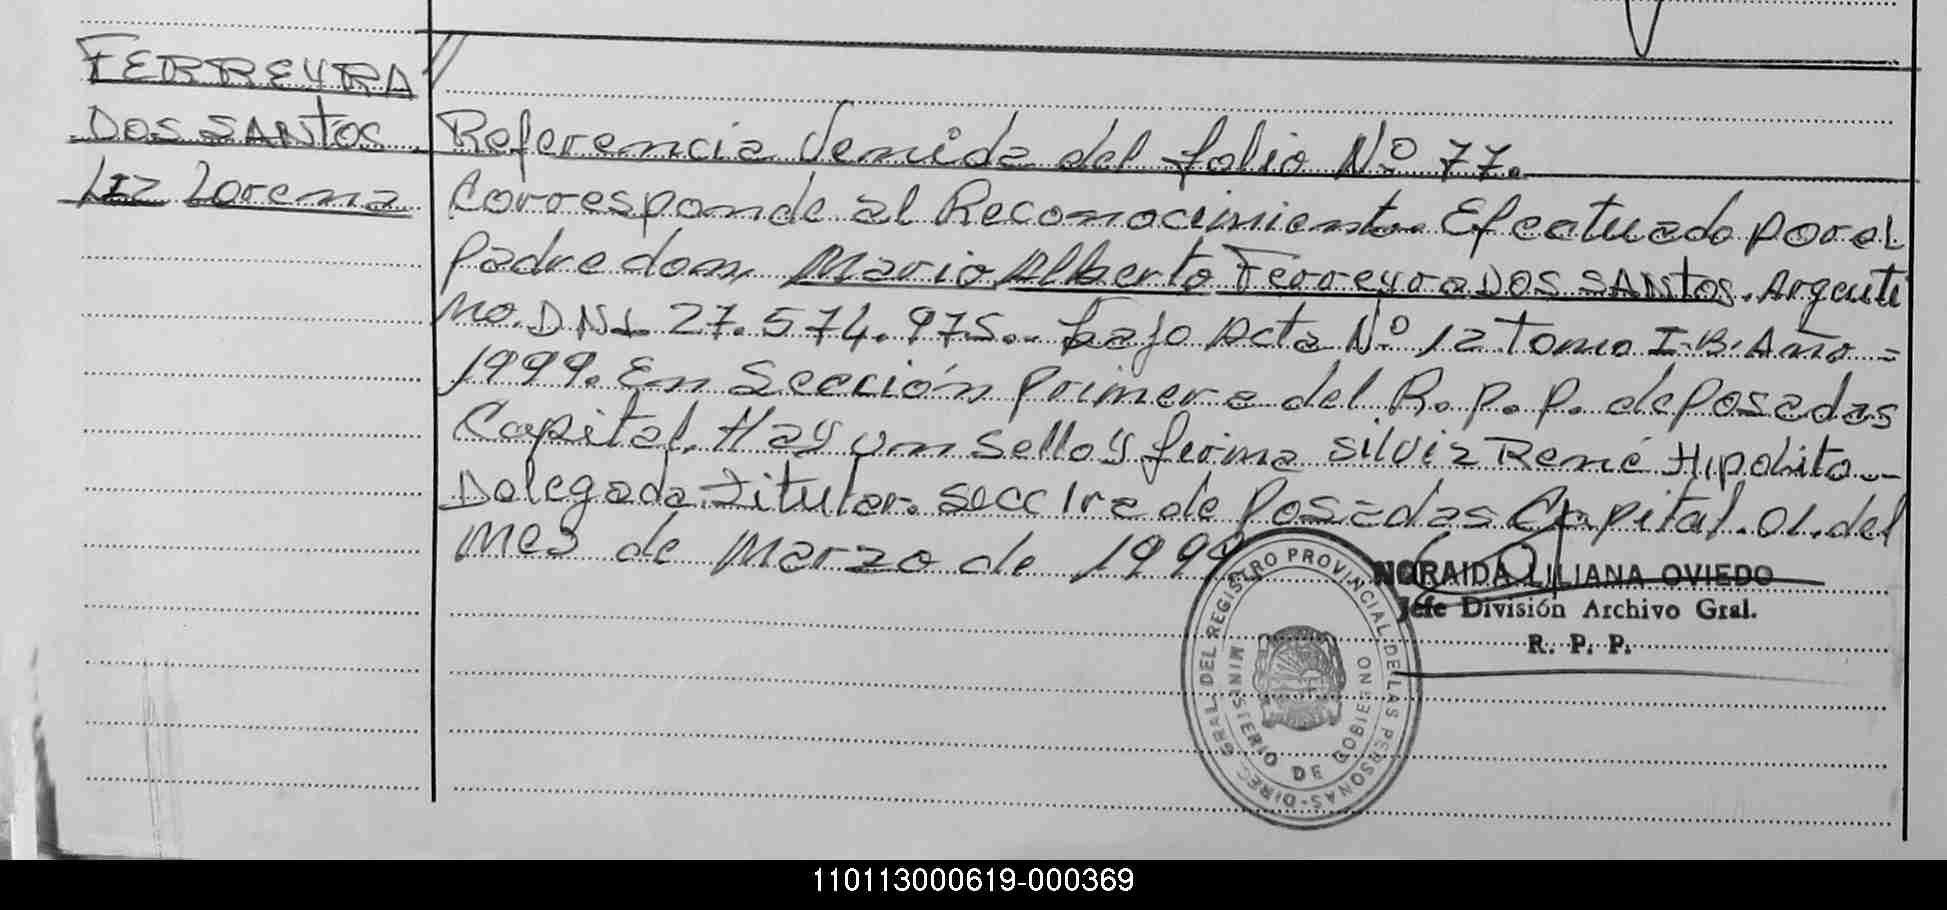 FERREYRA
DOS SANTOS
Liz Lorena
Referencia Venida del folio Nº 77.
Corresponde al Reconocimiento Efectuado por el
padre don, Mario Alberto Ferreyra DOS SANTOS. Argenti
no. DNI. 27.574.975.- bajo Acta Nº 12 Tomo I.B. Año =
1999. En Sección primera del R.P.P. de Posadas
Capital. Hay un Sello y firma Silvia René Hipolito.-
Delegada Titular. Secc 1ra de Posadas Capital. 01. del
mes de Marzo de 1999
NORAIDA LILIANA OVIEDO
Jefe División Archivo Gral.
R. P. P.
DIREC. GRAL. DEL REGISTRO PROVINCIAL DE LAS PERSONAS-
MINISTERIO DE GOBIERNO
110113000619-000369